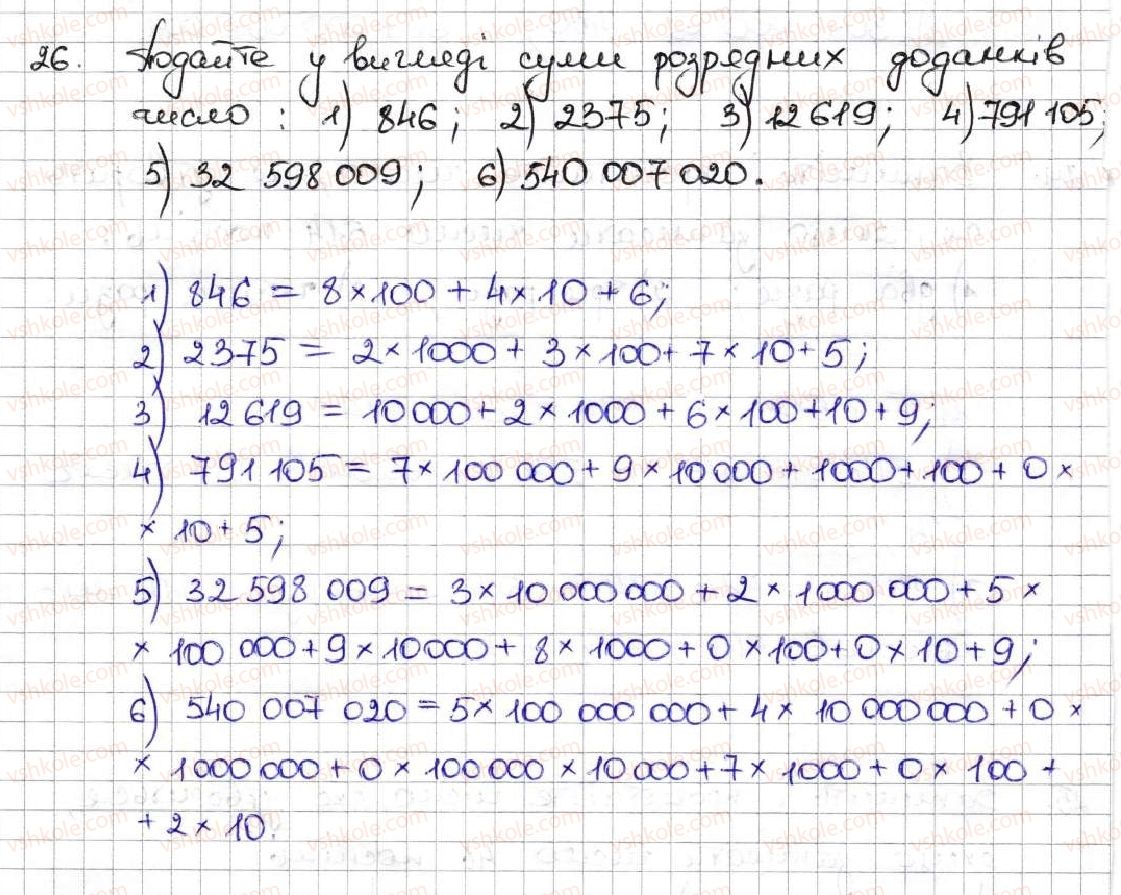 26. Подайте у вигляді суми розрядних доданків
число : 1) 846; 2) 2375; 3) 12 619; 4) 791 105;
5) 32 598 009; 6) 540 007 020.
1) 846 = 8 × 100 + 4 × 10 + 6;
2) 2375 = 2 × 1000 + 3 × 100 + 7 × 10 + 5;
3) 12 619 = 10 000 + 2 × 1000 + 6 × 100 + 10 + 9;
4) 791 105 = 7 × 100 000 + 9 × 10 000 + 1000 + 100 + 0 ×
× 10 + 5;
5) 32 598 009 = 3 × 10 000 000 + 2 × 1000 000 + 5 ×
× 100 000 + 9 × 10000 + 8 × 1000 + 0 × 100 + 0 × 10 + 9;
6) 540 007 020 = 5 × 100 000 000 + 4 × 10 000 000 + 0 ×
× 1000 000 + 0 × 100 000 × 10 000 + 7 × 1000 + 0 × 100 +
+ 2 × 10.